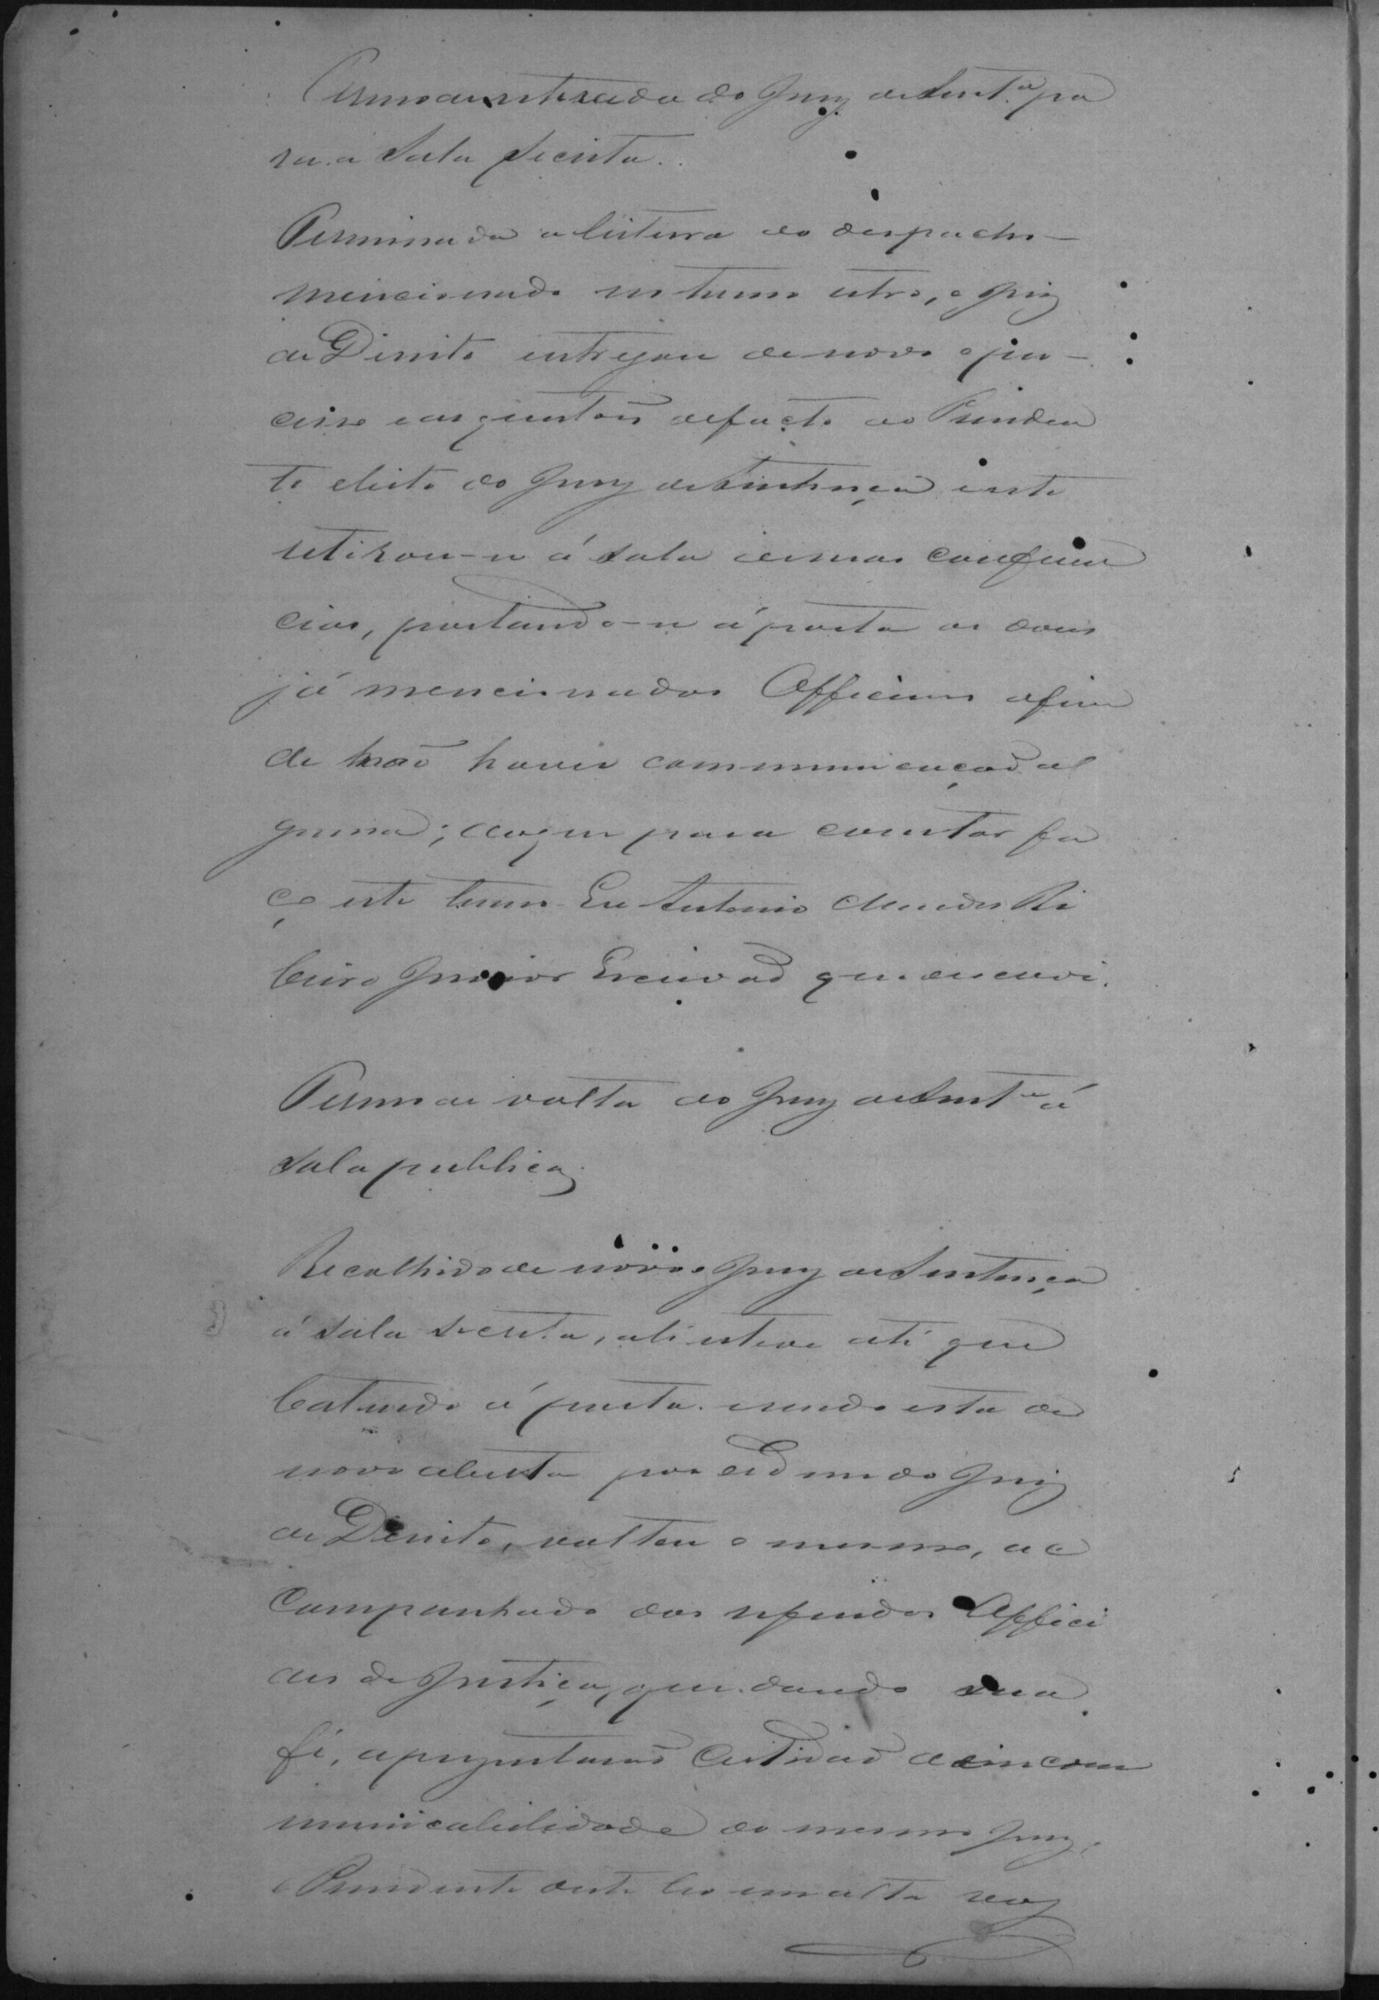 Termo de retirada do Jury de Sent.ª pa
ra a Sala Secreta.
Terminada a leitura do despacho
mencionado no termo retro, o Juiz
de Direito entregou de novo o pro-
cesso e as questões de facto ao Presiden
te eleito do Jury de Sentença e este
retirou-se á sala de suas conferen
cias, postando-se á porta os dous
já mencionados Officiaes afim
de não haver communicação al
guma; do que para constar fa
ço este termo. Eu Antonio Mendes Ri
beiro Junior Escrivaõ que escrevi.
Termo de volta do Jury de Sent.ª á
sala publica.
Recolhido de novo o Jury de Sentença
á sala secreta, ali esteve até que
batendo á porta. e sendo esta de
novo aberta por ordem do Juiz
de Direito, voltou o mesmo, ac
companhado dos referidos Offici
aes de Justiça, que dando sua
fé, apresentaraõ Certidaõ da incom
municabilidade do mesmo Jury.
O Presidente deste leo em alta voz